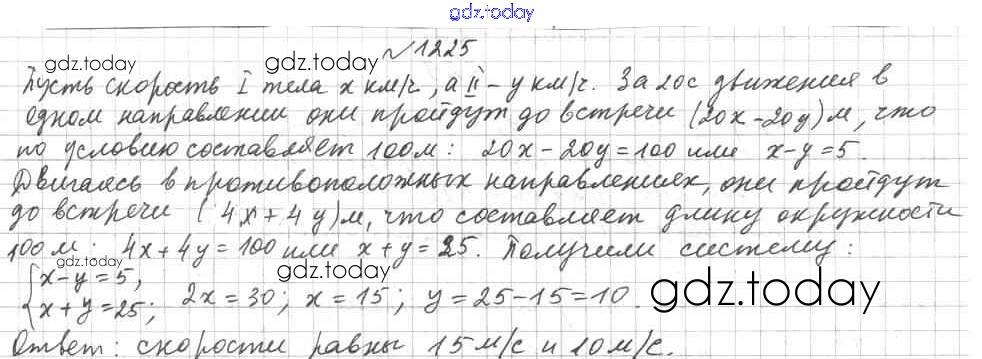 gdz.today
№1225
gdz.today gdz.today gdz.today
Пусть скорость I тела x км/ч, а II – y км/ч. За 20с движения в
одном направлении они пройдут до встречи (20x-20y)м, что
по условию составляет 100м: 20x-20y=100 или x-y=5.
Двигаясь в противоположных направлениях, они пройдут
до встречи (4x+4y)м, что составляет длину окружности
gdz.today gdz.today gdz.today
100м: 4x+4y=100 или x+y=25. Получили систему:
gdz.today gdz.today gdz.today
{x-y=5,
x+y=25; 2x=30; x=15; y=25-15=10.
Ответ: скорости равны 15м/с и 10м/с.
gdz.today gdz.today